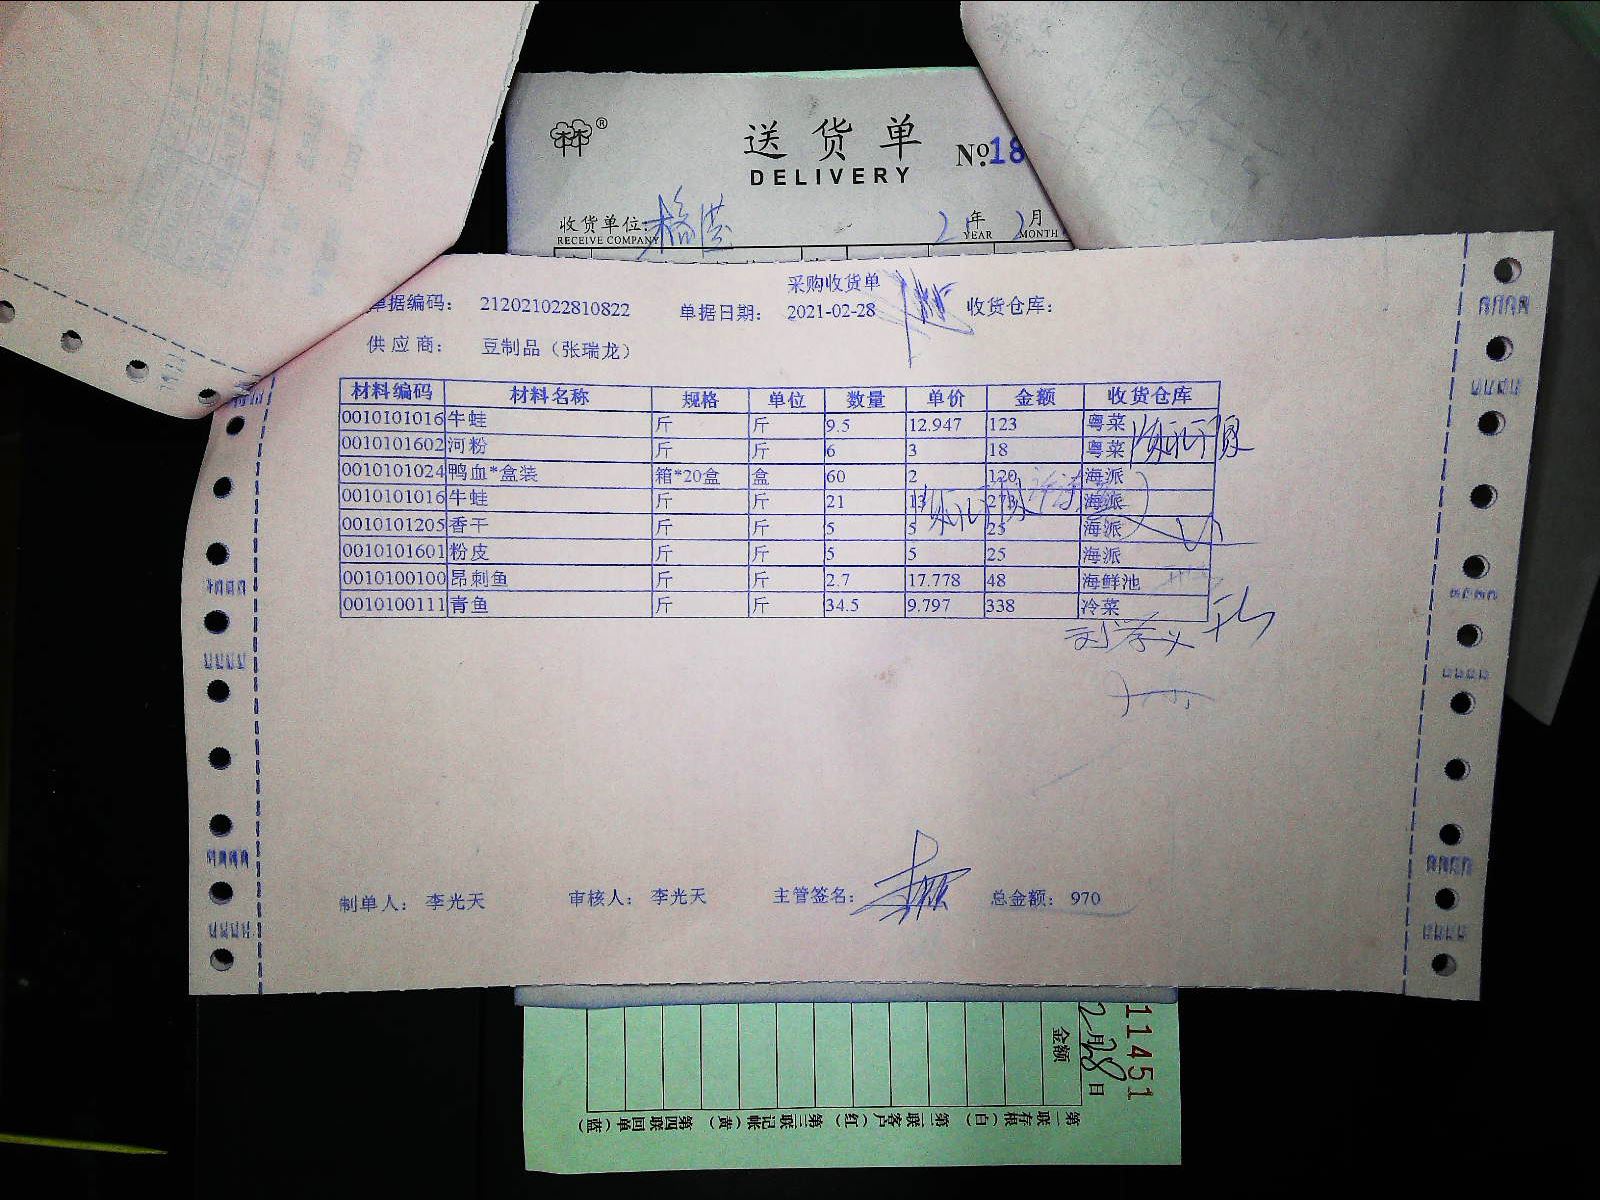 送货单
DELIVERY
№18
收货单位:
RECEIVE COMPANY
2 年 2 月
YEAR MONTH
采购收货单
单据编码: 212021022810822 单据日期: 2021-02-28 收货仓库:
供应商: 豆制品（张瑞龙）
材料编码 材料名称 规格 单位 数量 单价 金额 收货仓库
0010101016 牛蛙 斤 斤 9.5 12.947 123 粤菜
0010101602 河粉 斤 斤 6 3 18 粤菜
0010101024 鸭血*盒装 箱*20盒 盒 60 2 120 海派
0010101016 牛蛙 斤 斤 21 13 273 海派
0010101205 香干 斤 斤 5 5 25 海派
0010101601 粉皮 斤 斤 5 5 25 海派
0010100100 昂刺鱼 斤 斤 2.7 17.778 48 海鲜池
0010100111 青鱼 斤 斤 34.5 9.797 338 冷菜
制单人: 李光天 审核人: 李光天 主管签名: 总金额: 970
11451
2月28日
金额
第一联存根（白） 第二联客户（红） 第三联记帐（黄） 第四联回单（蓝）